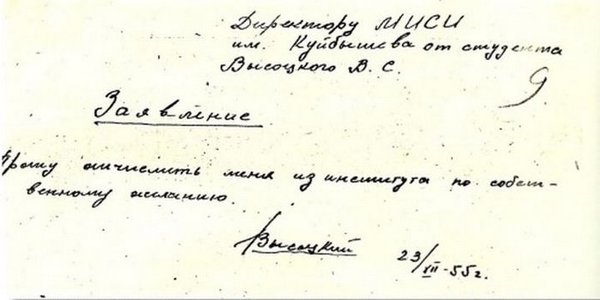 Директору МИСИ
им. Куйбышева от студента
Высоцкого В. С.
9
Заявление
Прошу отчислить меня из института по собст-
венному желанию.
Высоцкий 23/XII-55г.